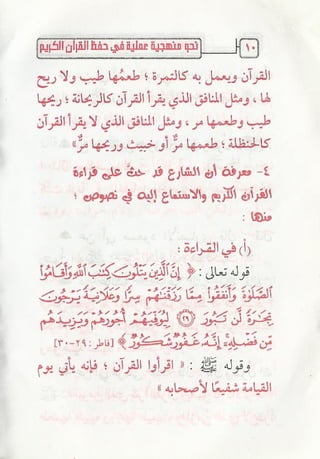 ١٠
نحو منهجية عملية في حفظ القرآن الكريم
القرآن ويعمل به كالتمرة ؛ طعمُها طيب ولا ريح
لها ، ومثل المنافق الذي يقرأ القرآن كالريحانة ؛ ريحها
طيب وطعمها مر ، ومثل المنافق الذي لا يقرأ القرآن
كالحنظلة ؛ طعمها مرٌّ أو خبيث وريحها مرٌّ»
٤- معرفة أن الشارع قد حثَّ على قراءة
القرآن الكريم والاستماع إليه في نصوص ؛
منها :
(أ) في القراءة :
قوله تعالى : ﴿ إِنَّ الَّذِينَ يَتْلُونَ كِتَابَ اللَّهِ وَأَقَامُوا
الصَّلَوٰةَ وَأَنفَقُوا مِمَّا رَزَقْنَٰهُمْ سِرًّا وَعَلَانِيَةً يَرْجُونَ
تِجَٰرَةً لَّن تَبُورَ ٢٩ لِيُوَفِّيَهُمْ أُجُورَهُمْ وَيَزِيدَهُم
مِّن فَضْلِهِ إِنَّهُ غَفُورٌ شَكُورٌ ﴾ [فاطر : ٢٩-٣٠]
وقوله ﷺ : « اقرأوا القرآن ؛ فإنه يأتي يوم
القيامة شفيعًا لأصحابه »